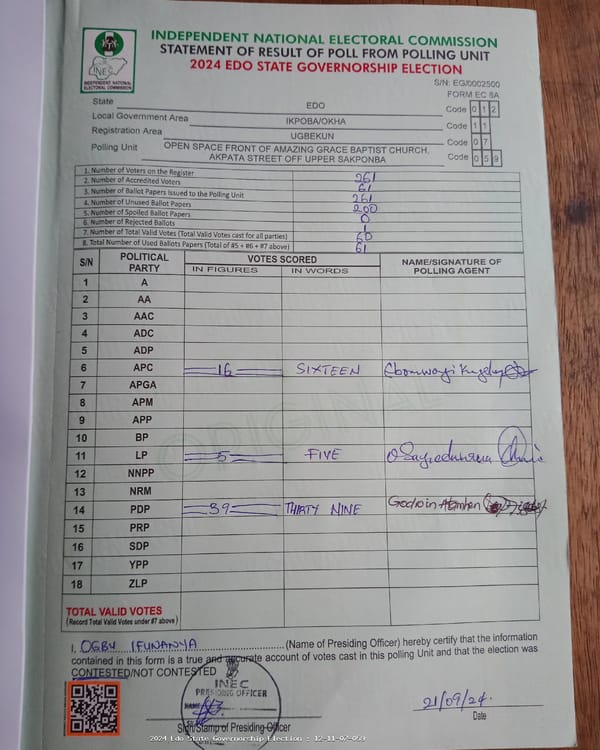 INDEPENDENT NATIONAL ELECTORAL COMMISSION
STATEMENT OF RESULT OF POLL FROM POLLING UNIT
2024 EDO STATE GOVERNORSHIP ELECTION
INEC
INDEPENDENT NATIONAL ELECTORAL COMMISSION
S/N: EG/0002500
FORM EC 8A
State EDO Code 0 1 2
Local Government Area IKPOBA/OKHA Code 1 1
Registration Area UGBEKUN Code 0 7
Polling Unit OPEN SPACE FRONT OF AMAZING GRACE BAPTIST CHURCH, AKPATA STREET OFF UPPER SAKPONBA Code 0 5 9
1. Number of Voters on the Register 261
2. Number of Accredited Voters 61
3. Number of Ballot Papers Issued to the Polling Unit 261
4. Number of Unused Ballot Papers 200
5. Number of Spoiled Ballot Papers 0
6. Number of Rejected Ballots 1
7. Number of Total Valid Votes (Total Valid Votes cast for all parties) 60
8. Total Number of Used Ballots Papers (Total of #5 + #6 + #7 above) 61
S/N POLITICAL PARTY VOTES SCORED NAME/SIGNATURE OF POLLING AGENT
IN FIGURES IN WORDS
1 A
2 AA
3 AAC
4 ADC
5 ADP
6 APC 16 SIXTEEN
7 APGA
8 APM
9 APP
10 BP
11 LP 5 FIVE
12 NNPP
13 NRM
14 PDP 39 THIRTY NINE
15 PRP
16 SDP
17 YPP
18 ZLP
ORIGINAL
TOTAL VALID VOTES
(Record Total Valid Votes under #7 above)
I, OGBU IFUNANYA (Name of Presiding Officer) hereby certify that the information
contained in this form is a true and accurate account of votes cast in this polling Unit and that the election was
CONTESTED/NOT CONTESTED
INEC
PRESIDING OFFICER
NAME
Sign/Stamp of Presiding Officer
21/09/24
Date
2024 Edo State Governorship Election : 12-11-07-059